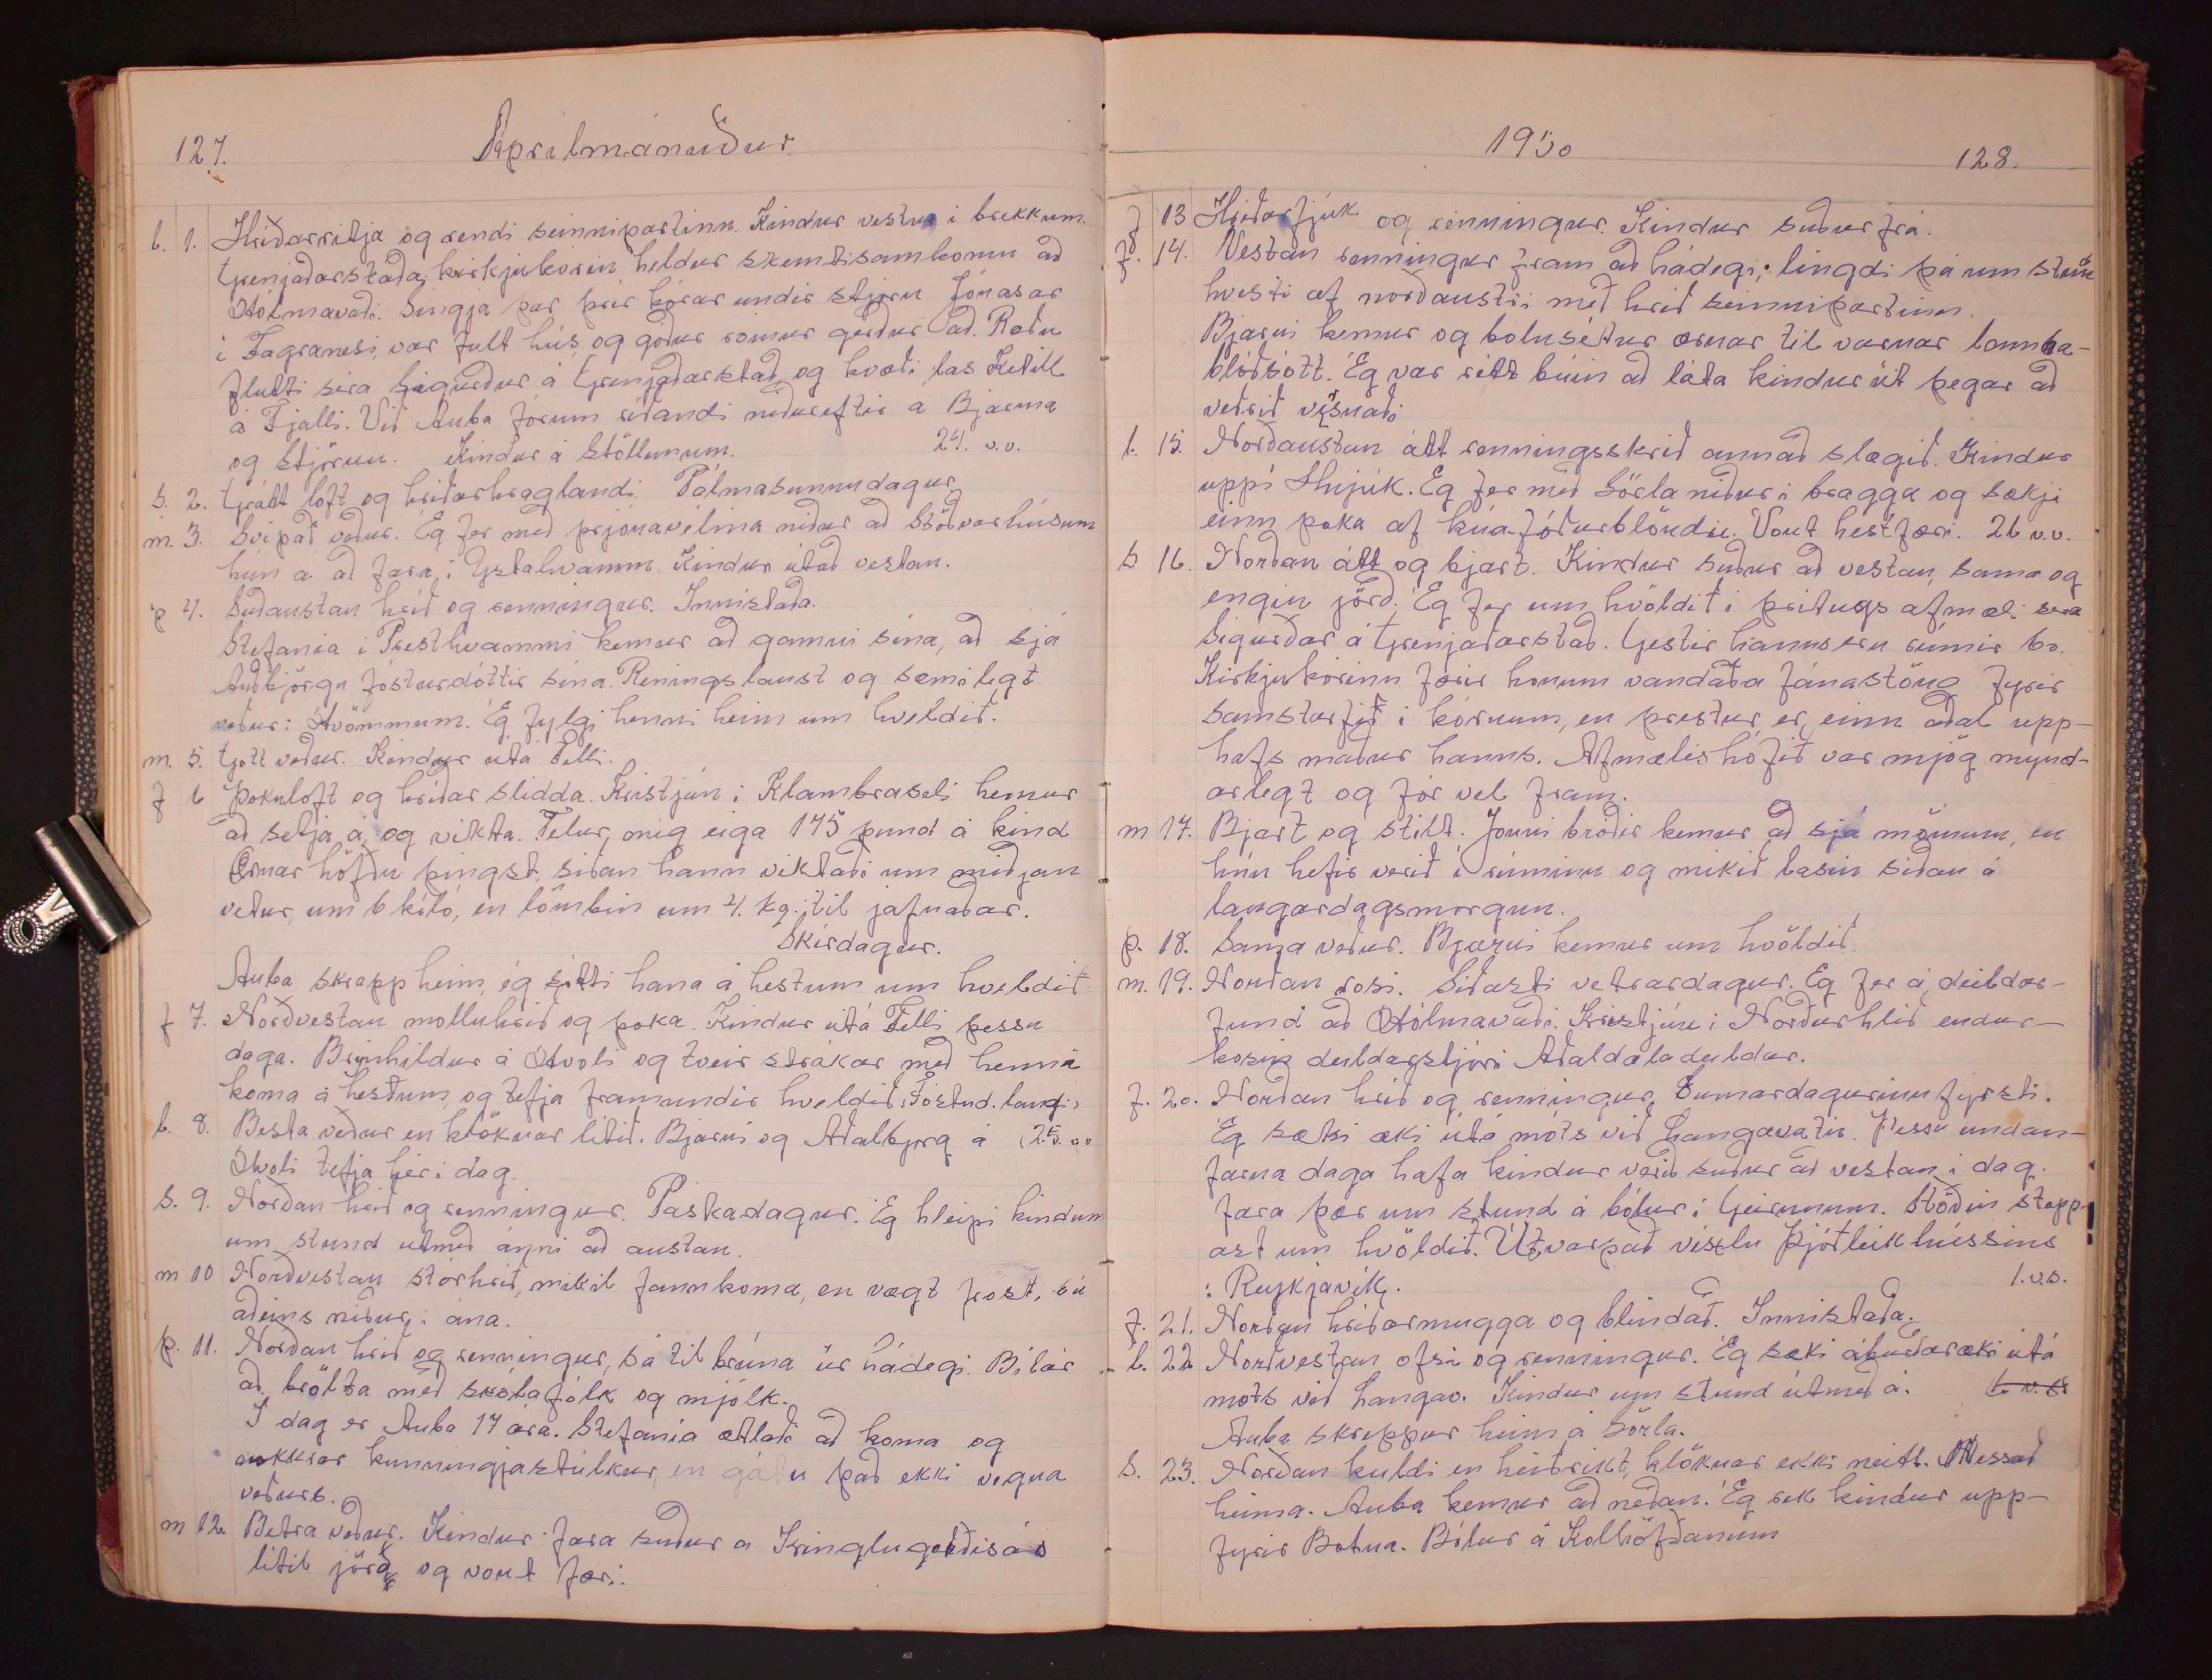 127.
Aprílmánuður.
l. 1. Hríðarritja og rendi seinnipartinn. Kindur vestur í brekkum.
Grenjaðarstaða, kirkjukórin heldur skemtisamkomu að
Hólmavaði. Singja þar þrír kórar undir stjórn Jónasar
í Fagranesi, var fult hús og góður rómur gerður að. Ræðu
flutti séra Sigurður á Grenjaðarstað og kvæði las Ketill
á Fjalli. Við Auba fórum ríðandi niðureftir á Bjarma
og Stjörnu. Kindur á Stöllunum. 24. v.v.
S. 2. Grátt loft og hríðarhraglandi. Pálmasunnudagur
m. 3. Svipað veður. Ég fer með prjónavélina niður að Stöðvarhúsum
hún á að fara í Ystahvamm. Kindur útað vestan.
þ 4. Suðaustan hríð og renningur. Innistaða.
Stefanía í Presthvammi kemur að gamni sína, að sjá
Auðbjörgu fósturdóttir sína. Reningslaust og sæmilegt
veður í Hvömmum. Ég fylgi henni heim um kveldið.
m. 5. Gott veður. Kindur útá Felli.
f 6 Þokuloft og hríðar slidda. Kristján í Klambraseli kemur
að setja á, og vikta. Telur, mig eiga 175 pund á kind
Ærnar höfðu þingst, síðan hann viktaði um miðjan
vetur, um 6 kíló, en lömbin um 4. kg. til jafnaðar.
Skírdagur.
Auba skrapp heim, ég sótti hana á hestum um kveldið
f 7. Norðvestan molluhríð og þoka. Kindur útá Felli þessu
daga. Brinhildur á Hvoli og tveir strákar með henni
koma á hestum, og tefja framundir kveldið, Föstud. langi,
l. 8. Besta veður en klöknar lítið. Bjarni og Aðalbjörg á (25. v.v
Hvoli tefja hér í dag.
S. 9. Norðan hríð og renningur. Páskadagur. Ég hleipi kindum
um stund útmeð ánni að austan.
m 10 Norðvestan stórhríð, mikil fannkoma, en vægt frost, bú
aðeins niður í ána.
þ. 11. Norðan hríð og renningur, sá til brúna úr hádegi. Bílar
að brölta með skólafólk og mjólk.
Í dag er Auba 17 ára. Stefanía ætlaði að koma og
nokkrar kunningjastúlkur, en gátu það ekki vegna
veðurs.
m 12. Betra veður. Kindur fara suður á Kringlugerðisás
lítil jörð og vont færi.
1950
128.
f 13 Hríðarfjúk og renningur. Kindur suðurfrá.
f. 14. Vestan renningur fram að hádegi, lingdi þá um stun
hvesti af norðaustri með hríð seinnipartinn.
Bjarni kemur og bolusétur ærnar til varnar lamba-
blóðsótt. Ég var rétt búin að láta kindur út þegar að
veðrið vesnaði
l. 15. Norðaustan átt renningsskrið annað slagið. Kindur
uppí Hnjúk. Ég fer með Sörla niður í bragga og sækji
einn poka af kúa-fóðurblöndu. Vont hestfæri. 26 v.v.
S 16. Norðan átt og bjart. Kindur suður að vestan, sama og
engin jörð. Ég fer um kvöldið í þrítugs afmæli séra
Sigurðar á Grenjaðarstað. Gestir hanns eru rúmir 60.
Kirkjukórinn færir honum vandaða fánastöng fyrir
samstarfið í kórnum, en prestur er einn aðal upp-
hafs maður hanns. Afmælishófið var mjög mynd-
arlegt og fór vel fram.
m 17. Bjart og stilt. Jonni bróðir kemur að sjá mömmu, en
hún hefir verið í rúminu og mikið lasin síðan á
laugardagsmorgun.
þ. 18. Sama veður. Bjarni kemur um kvöldið.
m. 19. Norðan rosi. Síðasti vetrardagur. Ég fer á deildar-
fund að Hólmavaði. Kristján í Norðurhlíð endur-
kosin deildarstjóri Aðaldæladeildar.
f. 20. Norðan hríð og renningur, Sumardagurinn fyrsti.
Ég sæki æki útá móts við Langavatn. Þessu undan-
farna daga hafa kindur verið suður að vestan, í dag.
fara þær um stund á bólur í Geirunum. Stöðin stopp-
ast um kvöldið. Útvarpað vígslu Þjóðleikhússins
í Reykjavík. 1. v.s.
f. 21. Norðan hríðarmugga og blindað. Innistaða.
l. 22 Norðvestan ofsi og renningur. Ég sæki áburðaræki útá
móts við Langav. Kindur um stund útmeð á. 1. v.s.
Auba skreppur heim á Sörla.
S. 23. Norðan kuldi en heiðríkt, klöknar ekki neitt. Messað
heima. Auba kemur að neðan. Ég rek kindur upp-
fyrir Botna. Bólur á Kolhöfðanum